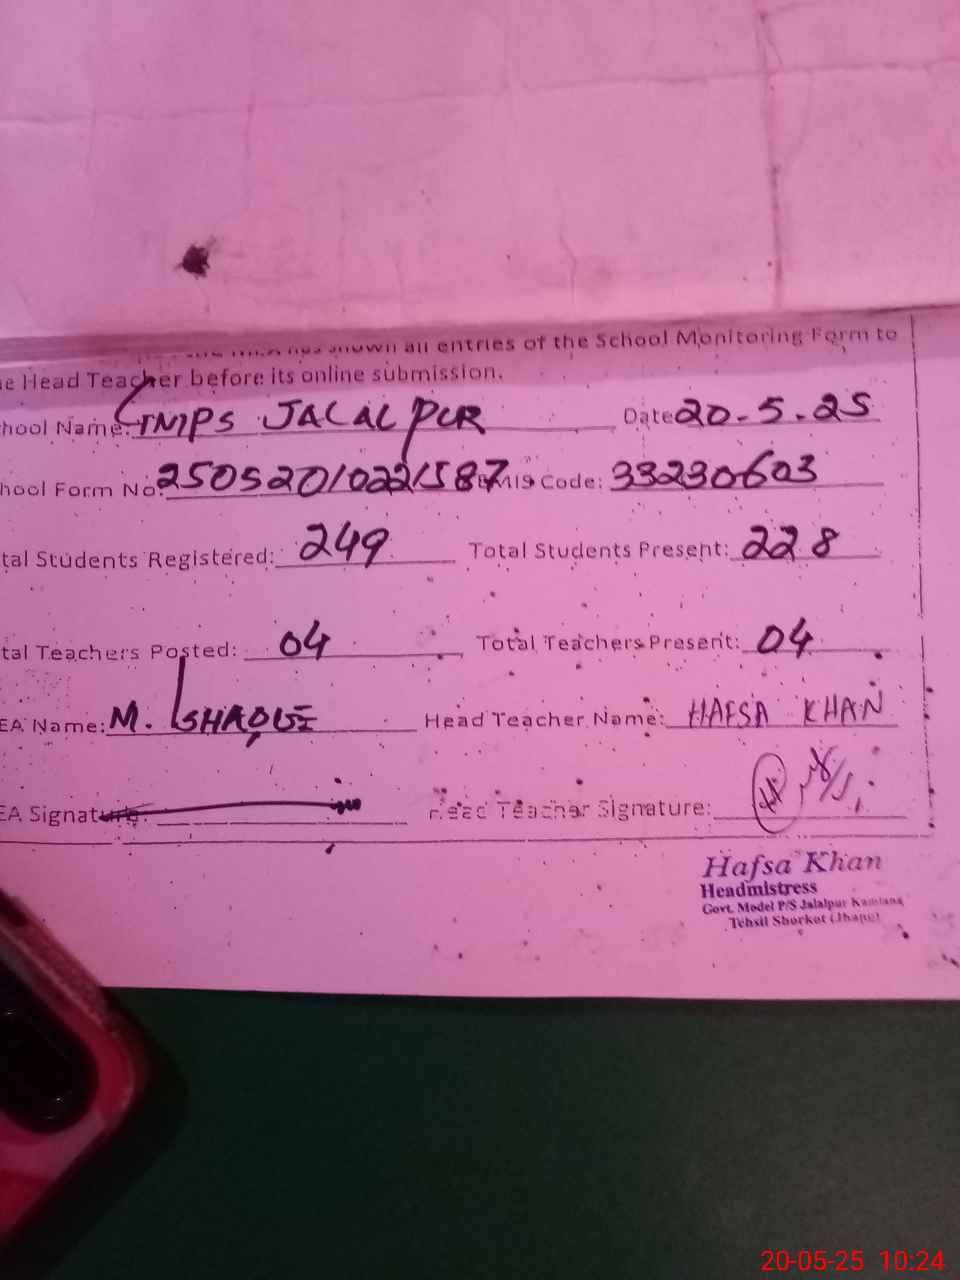 has shown all entries of the School Monitoring Form to
e Head Teacher before its online submission.
hool Name: GMPS JALAL PUR Date 20-5-25
hool Form No: 25052010221587 EMIS Code: 33230603
tal Students Registered: 249 Total Students Present: 228
tal Teachers Posted: 04 Total Teachers Present: 04
EA Name: M. Head Teacher Name: HAFSA KHAN
EA Signature: Head Teacher Signature:
Hafsa Khan
Headmistress
Govt. Model P/S Jalalpur Kamlana
Tehsil Shorkot (Jhang)
20-05-25 10:24